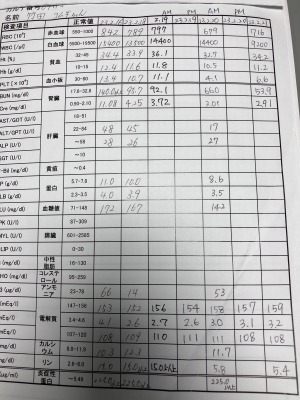 カルテ番号
名前 町田
検査項目 正常値 23.2.16 23.2.18 2.19 23.2.19 23.2.20 23.2.20
RBC (10⁶) 赤血球 550-1000 842 789 797 679 716
WBC (/μl) 白血球 5500-19500 15500 13500 14400 14400 9200
Ht (%) 貧血 32-45 34.4 33.9 36.1 32.7 34.2
Hb (g/dl) 12.4 11.6 11.8 10.5 11.2
PLT (×10⁴) 血小板 30-80 13.4 10.7 11.1 4.1 6.6
BUN (mg/dl) 腎臓 17.6-32.8 92.1 660 53.9
Cre (mg/dl) 0.90-2.10 11.08 4.25 3.72 2.91
AST/GOT (U/l) 肝臓 18-51
ALT/GPT (U/l) 22-84 48 45 17
ALP (U/l) ~58 28 26 27
GGT (U/l) ~10
T-Bil (mg/dl) 黄疸 ~0.4
TP (g/dl) 蛋白 5.7-7.8 11.0 10.0 8.6
ALB (g/dl) 2.3-3.5 4.0 3.9 3.5
GLU (mg/dl) 血糖値 71-148 172 167 142
CPK (U/l) 87-309
AMYL (U/l) 膵臓 601-2585
LIP (U/l) 0-30
中性脂肪 16-130
コレステロール 95-259
アンモニア 23-78 66 14 53
(mEq/l) 電解質 147-156 153 152 156 154 158 157 159
(mEq/l) 3.4-4.6 4.1 2.6 2.7 2.6 3.0 3.1 3.2
(mEq/l) 107-120 108 109 110 111 111 108 108
(mg/dl) カルシウム 10.3 12.3 11.7
(mg/dl) リン 2.6-6.0 15.0以上 5.8 5.4
(μg/ml) 炎症性蛋白 225.0以上